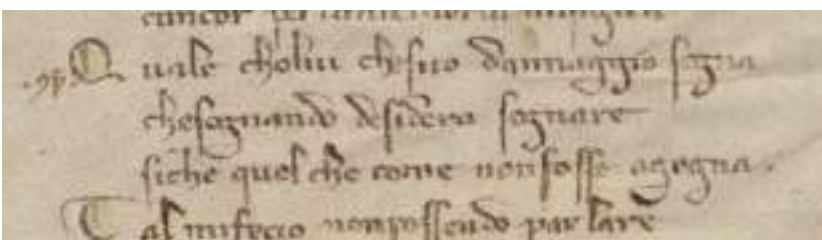 cancor
Quale cholui chesuo dannaggio sogna
chesognando desidera sognare
siche quel che come nonfosse agogna.
Tal mifecio nonpossendo parlare